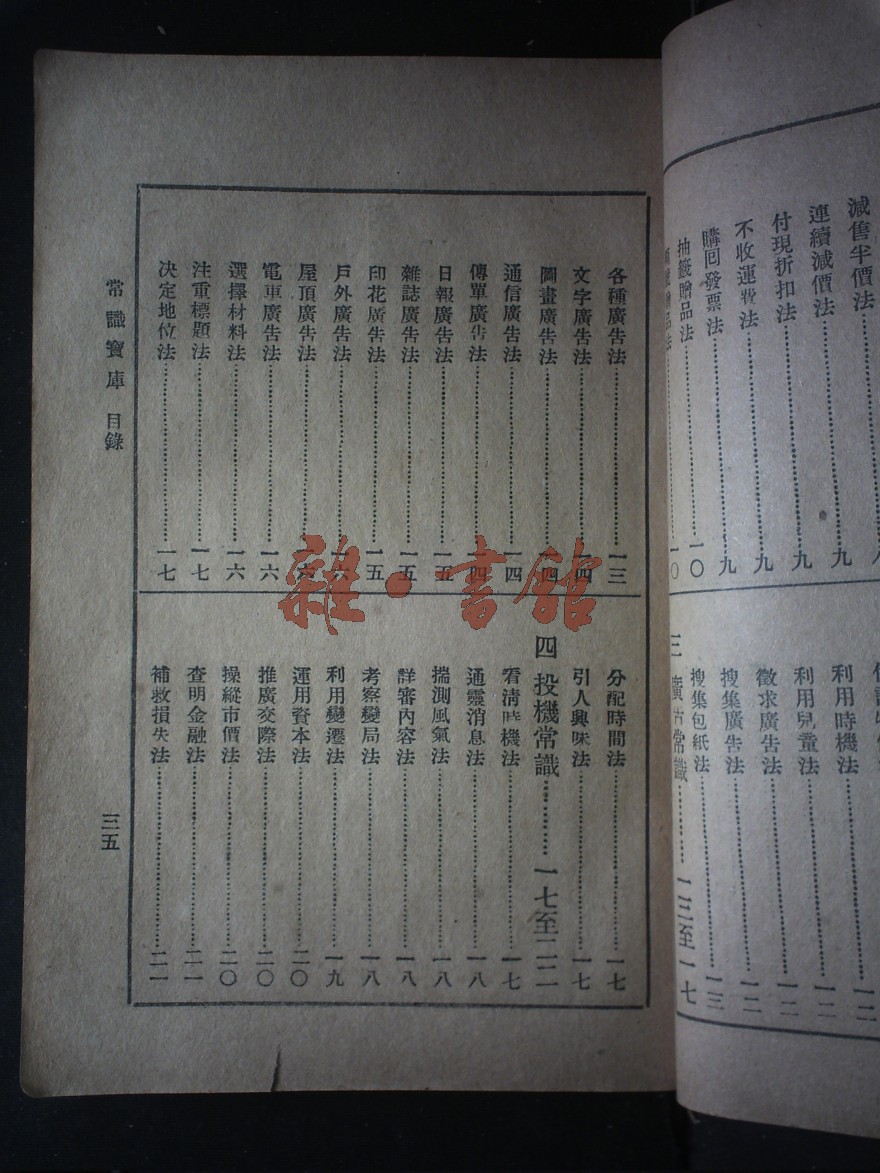 減售半價法…………八
連續減價法…………九
付現折扣法…………九
不收運費法…………九
購回發票法…………九
抽籤贈品法…………一〇
贈品法…………一〇
利用時機法…………一二
利用兒童法…………一二
徵求廣告法…………一二
搜集廣告法…………一二
搜集包紙法…………一三
三 廣告常識…………一三至一七
各種廣告法…………一三
文字廣告法…………一四
圖畫廣告法…………一四
通信廣告法…………一四
傳單廣告法…………一四
日報廣告法…………一五
雜誌廣告法…………一五
印花廣告法…………一五
戶外廣告法…………一六
屋頂廣告法…………一六
電車廣告法…………一六
選擇材料法…………一六
注重標題法…………一七
決定地位法…………一七
分配時間法…………一七
引人興味法…………一七
四 投機常識…………一七至二二
看清時機法…………一七
通靈消息法…………一八
揣測風氣法…………一八
詳審內容法…………一八
考察變局法…………一八
利用變遷法…………一九
運用資本法…………二〇
推廣交際法…………二〇
操縱市價法…………二〇
查明金融法…………二一
補救損失法…………二一
常識寶庫 目錄
三五
雜·書館